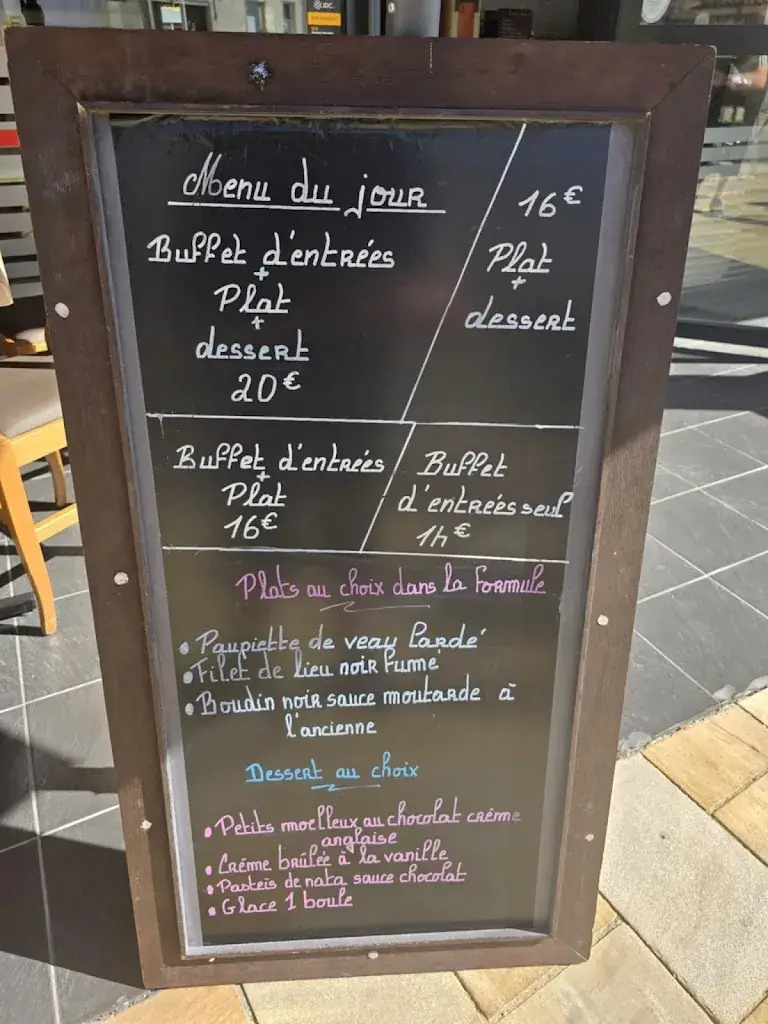 JDC.
Menu du jour
Buffet d'entrées
+
Plat
+
dessert
20€
16€
Plat
+
dessert
Buffet d'entrées
+
Plat
16€
Buffet
d'entrées seul
14€
Plats au choix dans la formule
• Paupiette de veau lardé
• Filet de lieu noir fumé
• Boudin noir sauce moutarde à
l'ancienne
Dessert au choix
• Petits moelleux au chocolat crème
anglaise
• Crème brûlée à la vanille
• Pasteïs de nata sauce chocolat
• Glace 1 boule